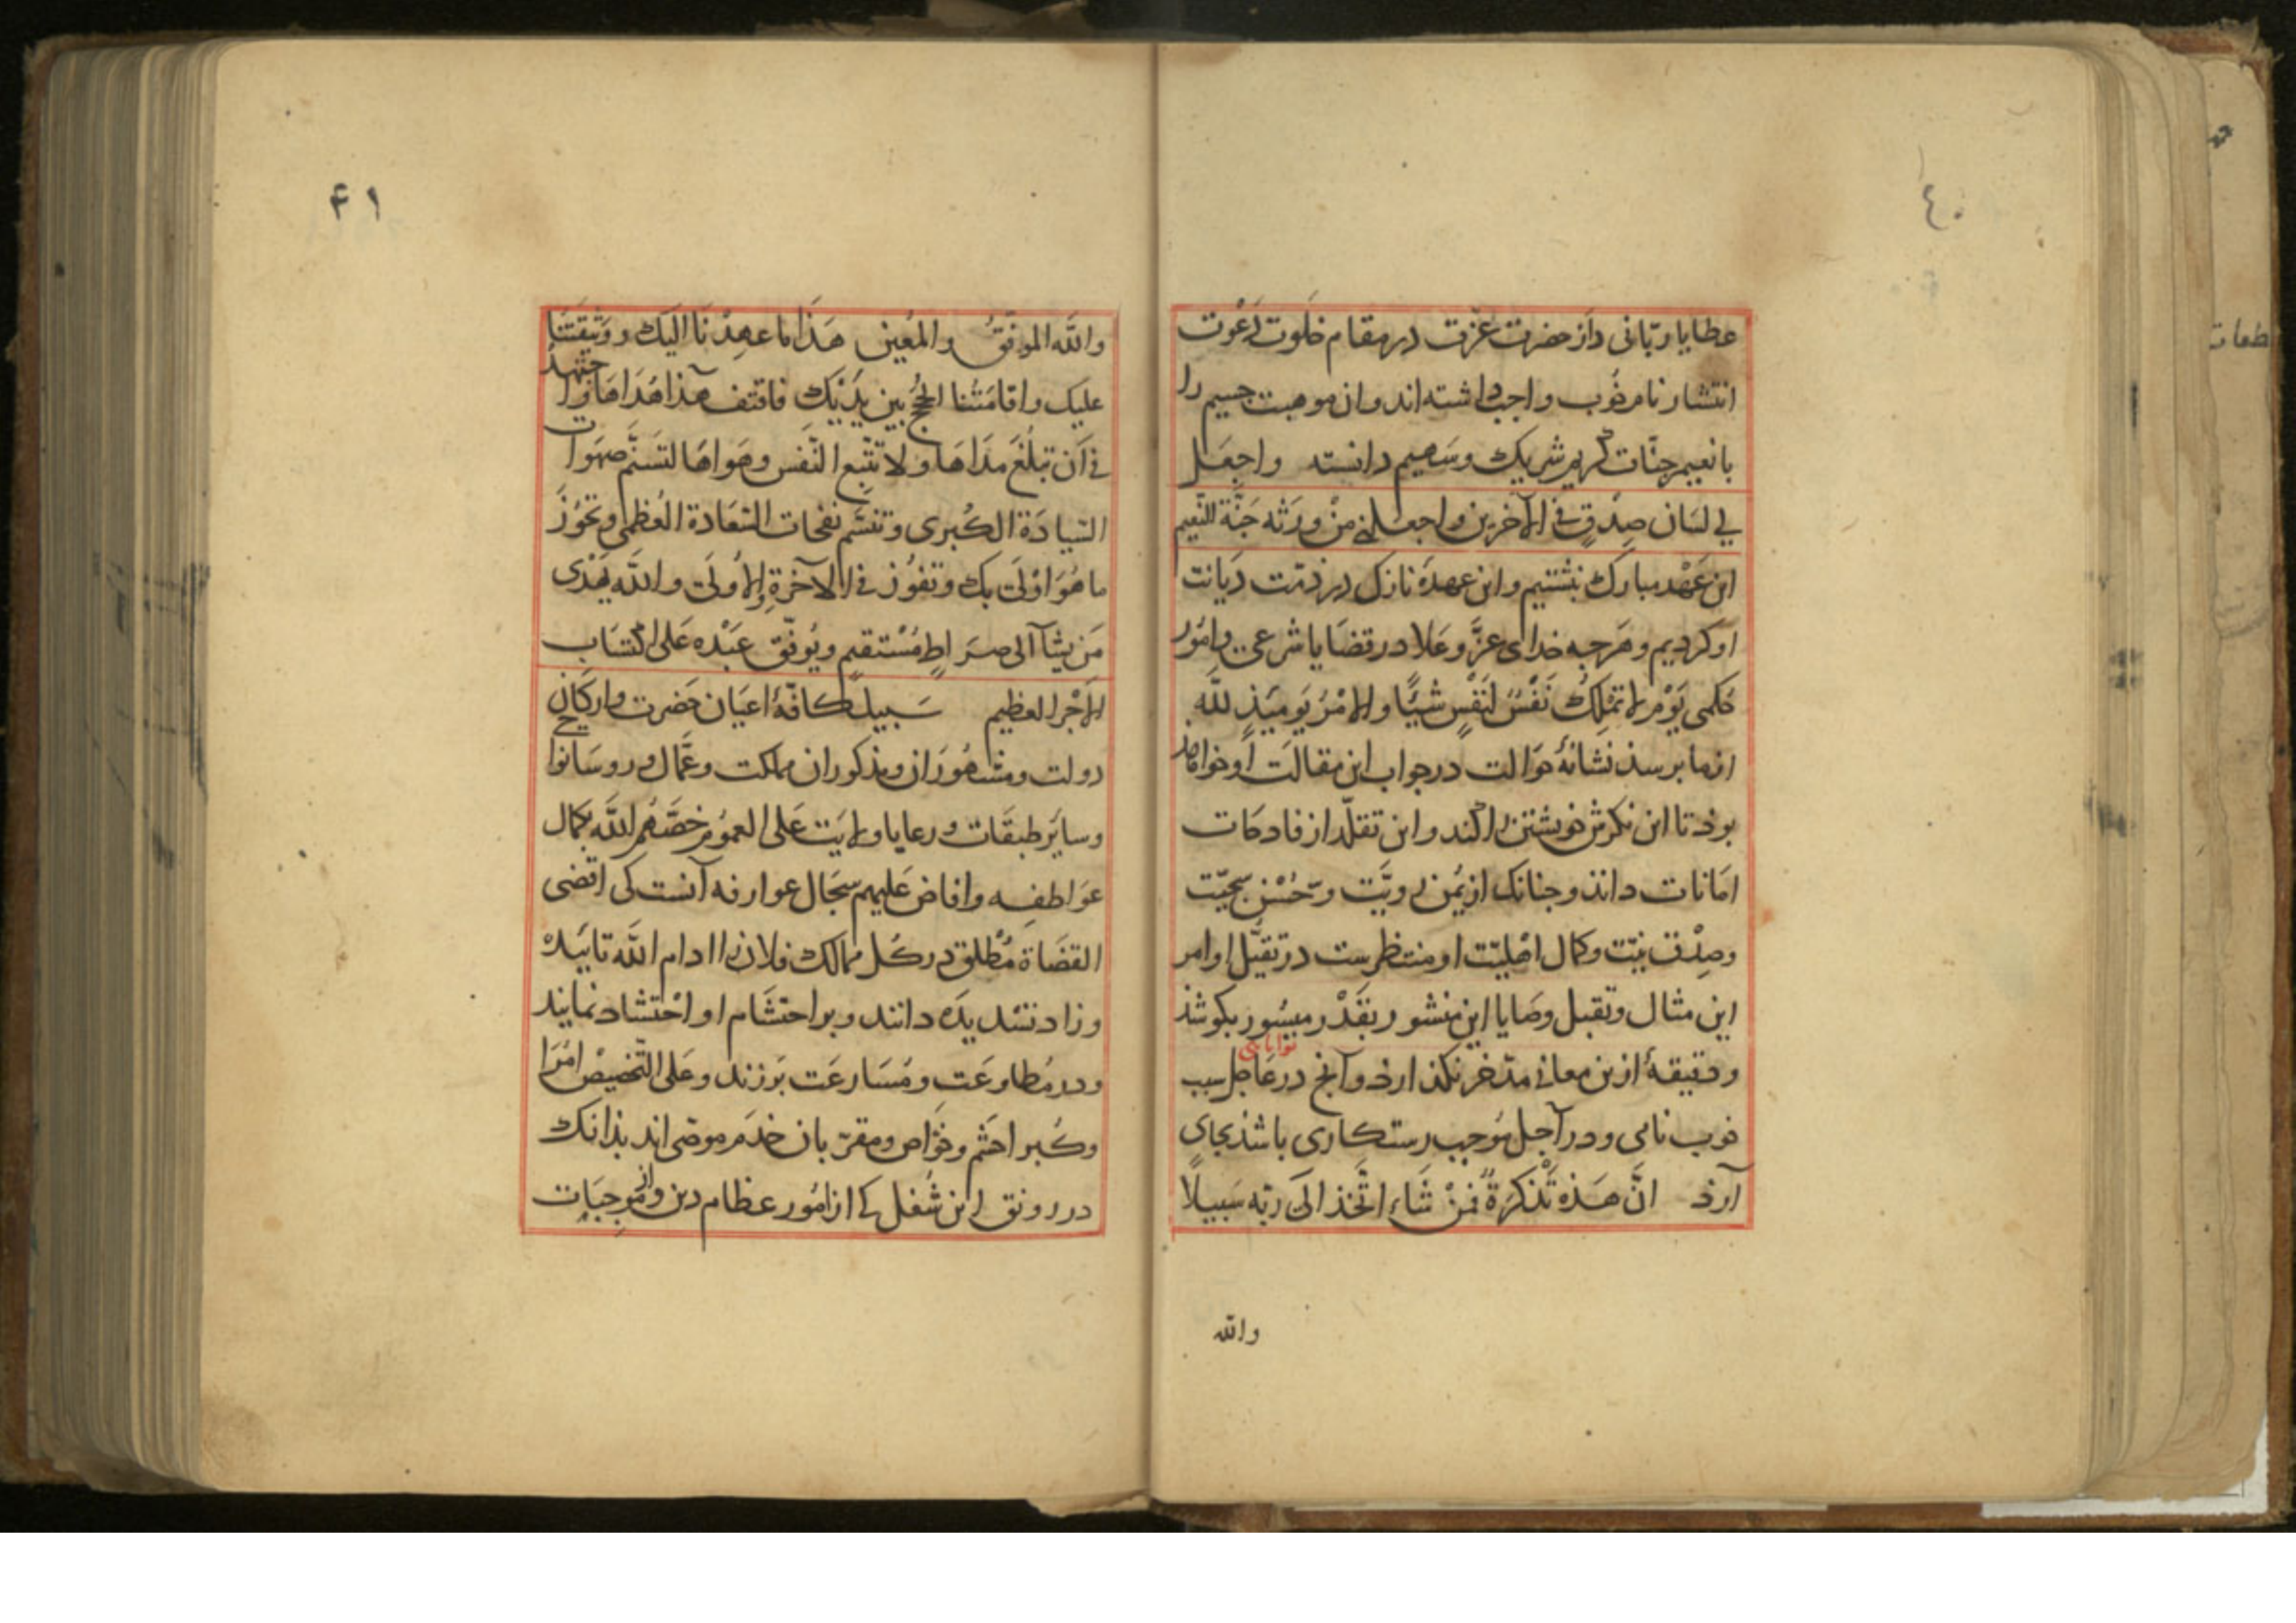 ٤٠
عطایا ربّانی و از حضرت عزّت در مقام خلوت دعوت
انتشار نام خوب واجب داشته اند و ان موهبت جسیم را
با نعیم جنّات کریم شریک و سَهیم دانسته واجعَل
لي لسَان صِدْقٍ في الآخرين واجعَلني منْ ورَثة جَنّة النّعيم
این عَهْد مبارک نبشتیم و این عهده نازک در ذمّت دیَانت
او کردیم و هَرچه خدای عزَّ وعَلا در قضَایا شرعی و امُور
حُکمی یَوْمَ لا تمْلِكُ نَفْسٌ لنَفْسٍ شَيْئًا والامْرُ يَوْمَئِذٍ للّه
از ما برسذ نشانهٔ حَوالت در جواب این مقالت او خواهذ
بوذ تا این نکرش خویشتن را کند و این تقلّد از فادحات
امَانات دانذ و جنانک از یُمن رویَّت و حُسْن سجیّت
وصِدْق نیّت و کمال اهْلیّت او منتظرست در تقیّل اوامر
این مثال و تقبل وصَایا این منشور بقَدْر میسُور بکوشذ
توانایی
و دقیقهٔ ازین معانی مدّخر نکذارذ و آنج در عَاجِل سبب
خوب نامی و در آجل مُوجب رستکاری باشذ بجای
آرذ انَّ هَذه تَذْكرَةٌ فمَنْ شَاءَ اتَّخذ الَى ربّه سَبيلاً
والله
۴۱
واللّه الموفّقُ والمُعين هَذَا ما عهدْنَا اليَك ووَثيقتَنا
عليك واقامَتُنا الحُجج بين يدَيْكَ فاقتف هذا هُدَاهَا واجتهدْ
في اَن تبلُغَ مدَاهَا ولا تتّبع النّفس وهَواهَا لتَسَنَّم صهَوات
السّيادَة الكُبرى وتتنسَّم نفحات السّعَادة العُظمى وتحُوزَ
ما هُوَ اوْلَى بك وتفُوْز في الآخرةِ والاُولَى واللّه يَهْدى
مَن يشآ الى صرَاطٍ مُسْتقيمٍ ويُوفّق عبْدَه عَلى اكتسَاب
الاَجْر العظيم سَبيل کافّهٔ اعیَان حَضرت و ارکان
دولت و مشهُورَان و مذکوران مملکت و عمَّال و روسَا نواحی
و سایَر طبقَات و رعایا ولایَت عَلی العموُم خصَّهُم اللّه بكمال
عَواطفِه وافاضَ عَليهم سجَال عوارفه آنست کی اقضی
القضَاة مُطْلق در کُل ممالک فلان را ادام اللّه تاییدَهْ
و زاد تسْدیدَه دانند و بر احتشَام او احْتشاد نمایند
و در مُطاوعَت و مُسَارعَت بَرزند و عَلی التّخصیْص امُرَا
و کُبرا حشم و خوَاص و مقرّبان خدَم موصّی اند بذانک
در رونق این شُغل کے از امُور عظام دین و از مُوجبَات